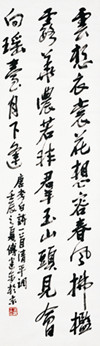 雲想衣裳花想容春風拂檻
露華濃若非群玉山頭見會
向瑤臺月下逢
唐李白詩一首清平調
壬辰之夏